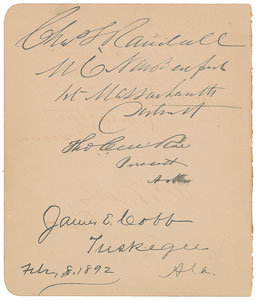 Chas S Randall
M C New Bedford
1st Massachusetts
District
Prescott
James E. Cobb
Tuskegee
Feby. 8. 1892 Ala.